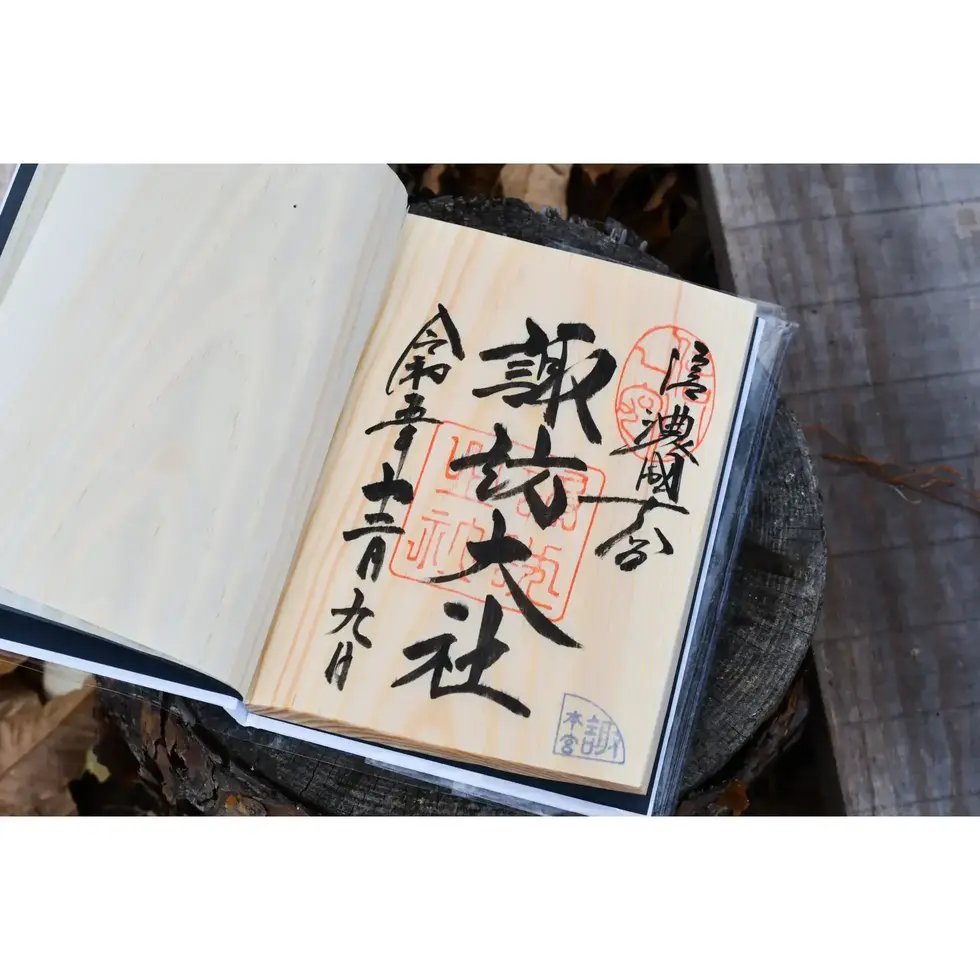 信濃國一宮
諏訪大社
令和五年十二月九日
諏
本宮